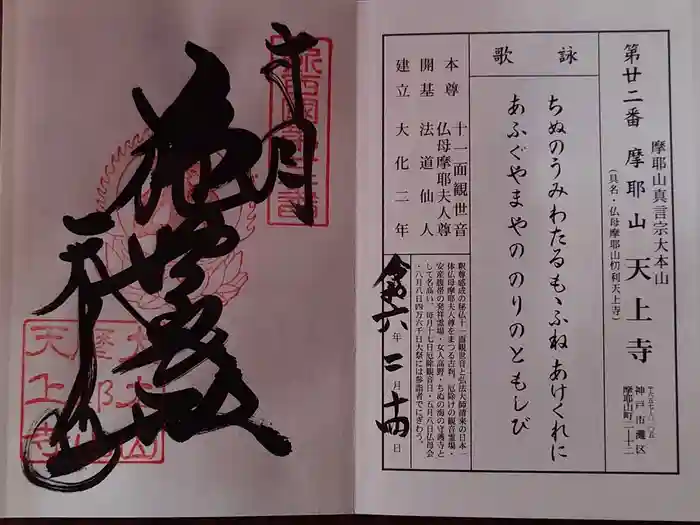 第廿二番 摩耶山 天上寺
摩耶山真言宗大本山
(具名・仏母摩耶山忉利天上寺)
神戸市灘区
摩耶山町二-十二
詠歌
ちぬのうみわたるもゝふね あけくれに
あふぐやまやの のりのともしび
本尊 十一面観世音
仏母摩耶夫人尊
開基 法道仙人
建立 大化二年
釈尊感成の秘仏十一面観世音と弘法大師請来の日本一
体仏母摩耶夫人尊をまつる古刹、厄除けの観音霊場・
安産腹帯の発祥霊場・女人高野・ちぬの海の守護寺と
して名高い。毎月十七日厄除観音日・五月八日仏母会
・八月八日四万六千日大祭には参詣者でにぎわう。
令和六年二月十四日
奉拝
天上寺
摩耶山
天上寺